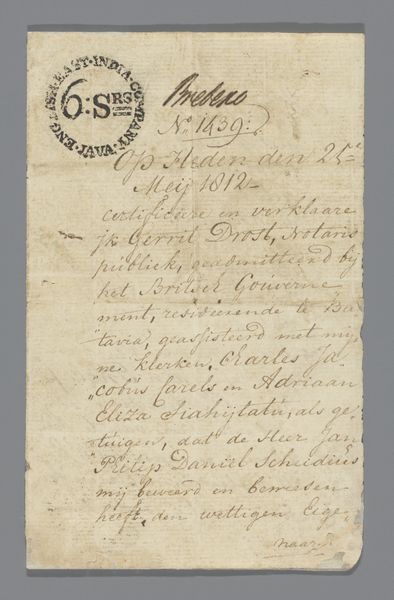 ENGLISH·EAST·INDIA·COMPANY·JAVA·
6:SRS
No. 1439:
Op Heden den 25e
Meij 1812
certificeere en verklaare
ik Gerrit Drost, Notaris
publiek, geadmitteerd bij
het Britsch Gouverne
ment, resideerende te Ba
"tavia, geassisteerd met mij
ne klerken, Charles Ja
"cobus Carels en Adriaan
Eliza Siahijtatu, als ge,
"tuigen, dat de Heer Jan
"Philip Daniël Scheidius
mij beweerd en bewesen
heeft, den wettigen Eige,
naar